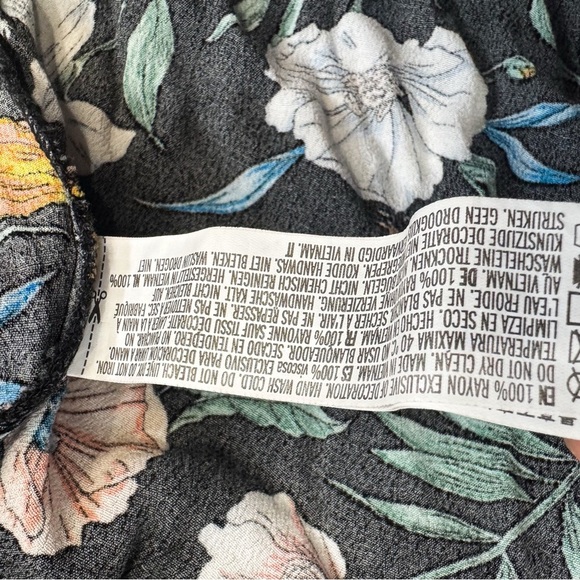 EN 100% RAYON EXCLUSIVE OF DECORATION. HAND WASH COLD. DO NOT BLEACH. LINE DRY. DO NOT IRON
DO NOT DRY CLEAN. MADE IN VIETNAM. ES 100% VISCOSA EXCLUSIVO PARA DECORACIÓN.
TEMPERATURA MAXIMA 40 °C. NO USAR BLANQUEADOR. SECADO EN TENDEDERO. NO PLANCHAR. NO
LIMPIEZA EN SECO. HECHO EN VIETNAM. FR 100% RAYONNE
L'EAU FROIDE. NE PAS BLANCHIR. SÉCHER À L'AIR. NE PAS REPASSER. NE PAS NETTOYER À SEC. FABRIQUÉ
AU VIETNAM. DE 100% RAYON VERZIERUNG. HANDWÄSCHE KALT.
WÄSCHELEINE TROCKNEN. NICHT BÜGELN. NICHT CHEMISCH REINIGEN. HERGESTELLT IN VIETNAM. NL 100%
KUNSTZIJDE DECORATIE KOUDE HANDWAS. NIET BLEKEN. WASLIJN DROGEN. NIET
STRIJKEN. GEEN DROOGKUIS VIETNAM. IT